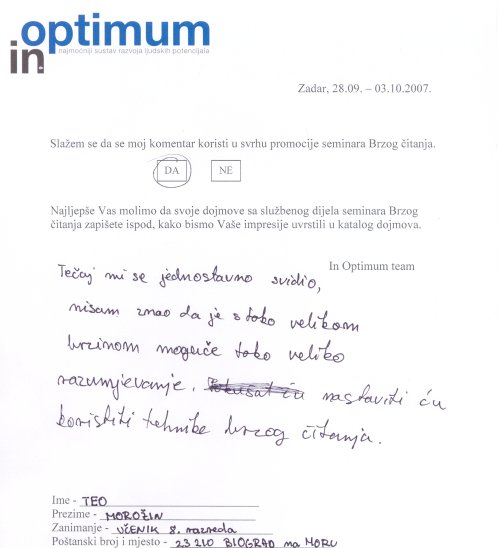 optimum
in
najmoćniji sustav razvoja ljudskih potencijala
Zadar, 28.09. – 03.10.2007.
Slažem se da se moj komentar koristi u svrhu promocije seminara Brzog čitanja.
DA NE
Najljepše Vas molimo da svoje dojmove sa službenog dijela seminara Brzog
čitanja zapišete ispod, kako bismo Vaše impresije uvrstili u katalog dojmova.
In Optimum team
Tečaj mi se jednostavno svidio,
nisam znao da je s tako velikom
brzinom moguće tako veliko
razumjevanje. nastaviti ću
koristiti tehnike brzog čitanja.
Ime - TEO
Prezime - MOROŽIN
Zanimanje - UČENIK 8. razreda
Poštanski broj i mjesto - 23210 BIOGRAD na MORU